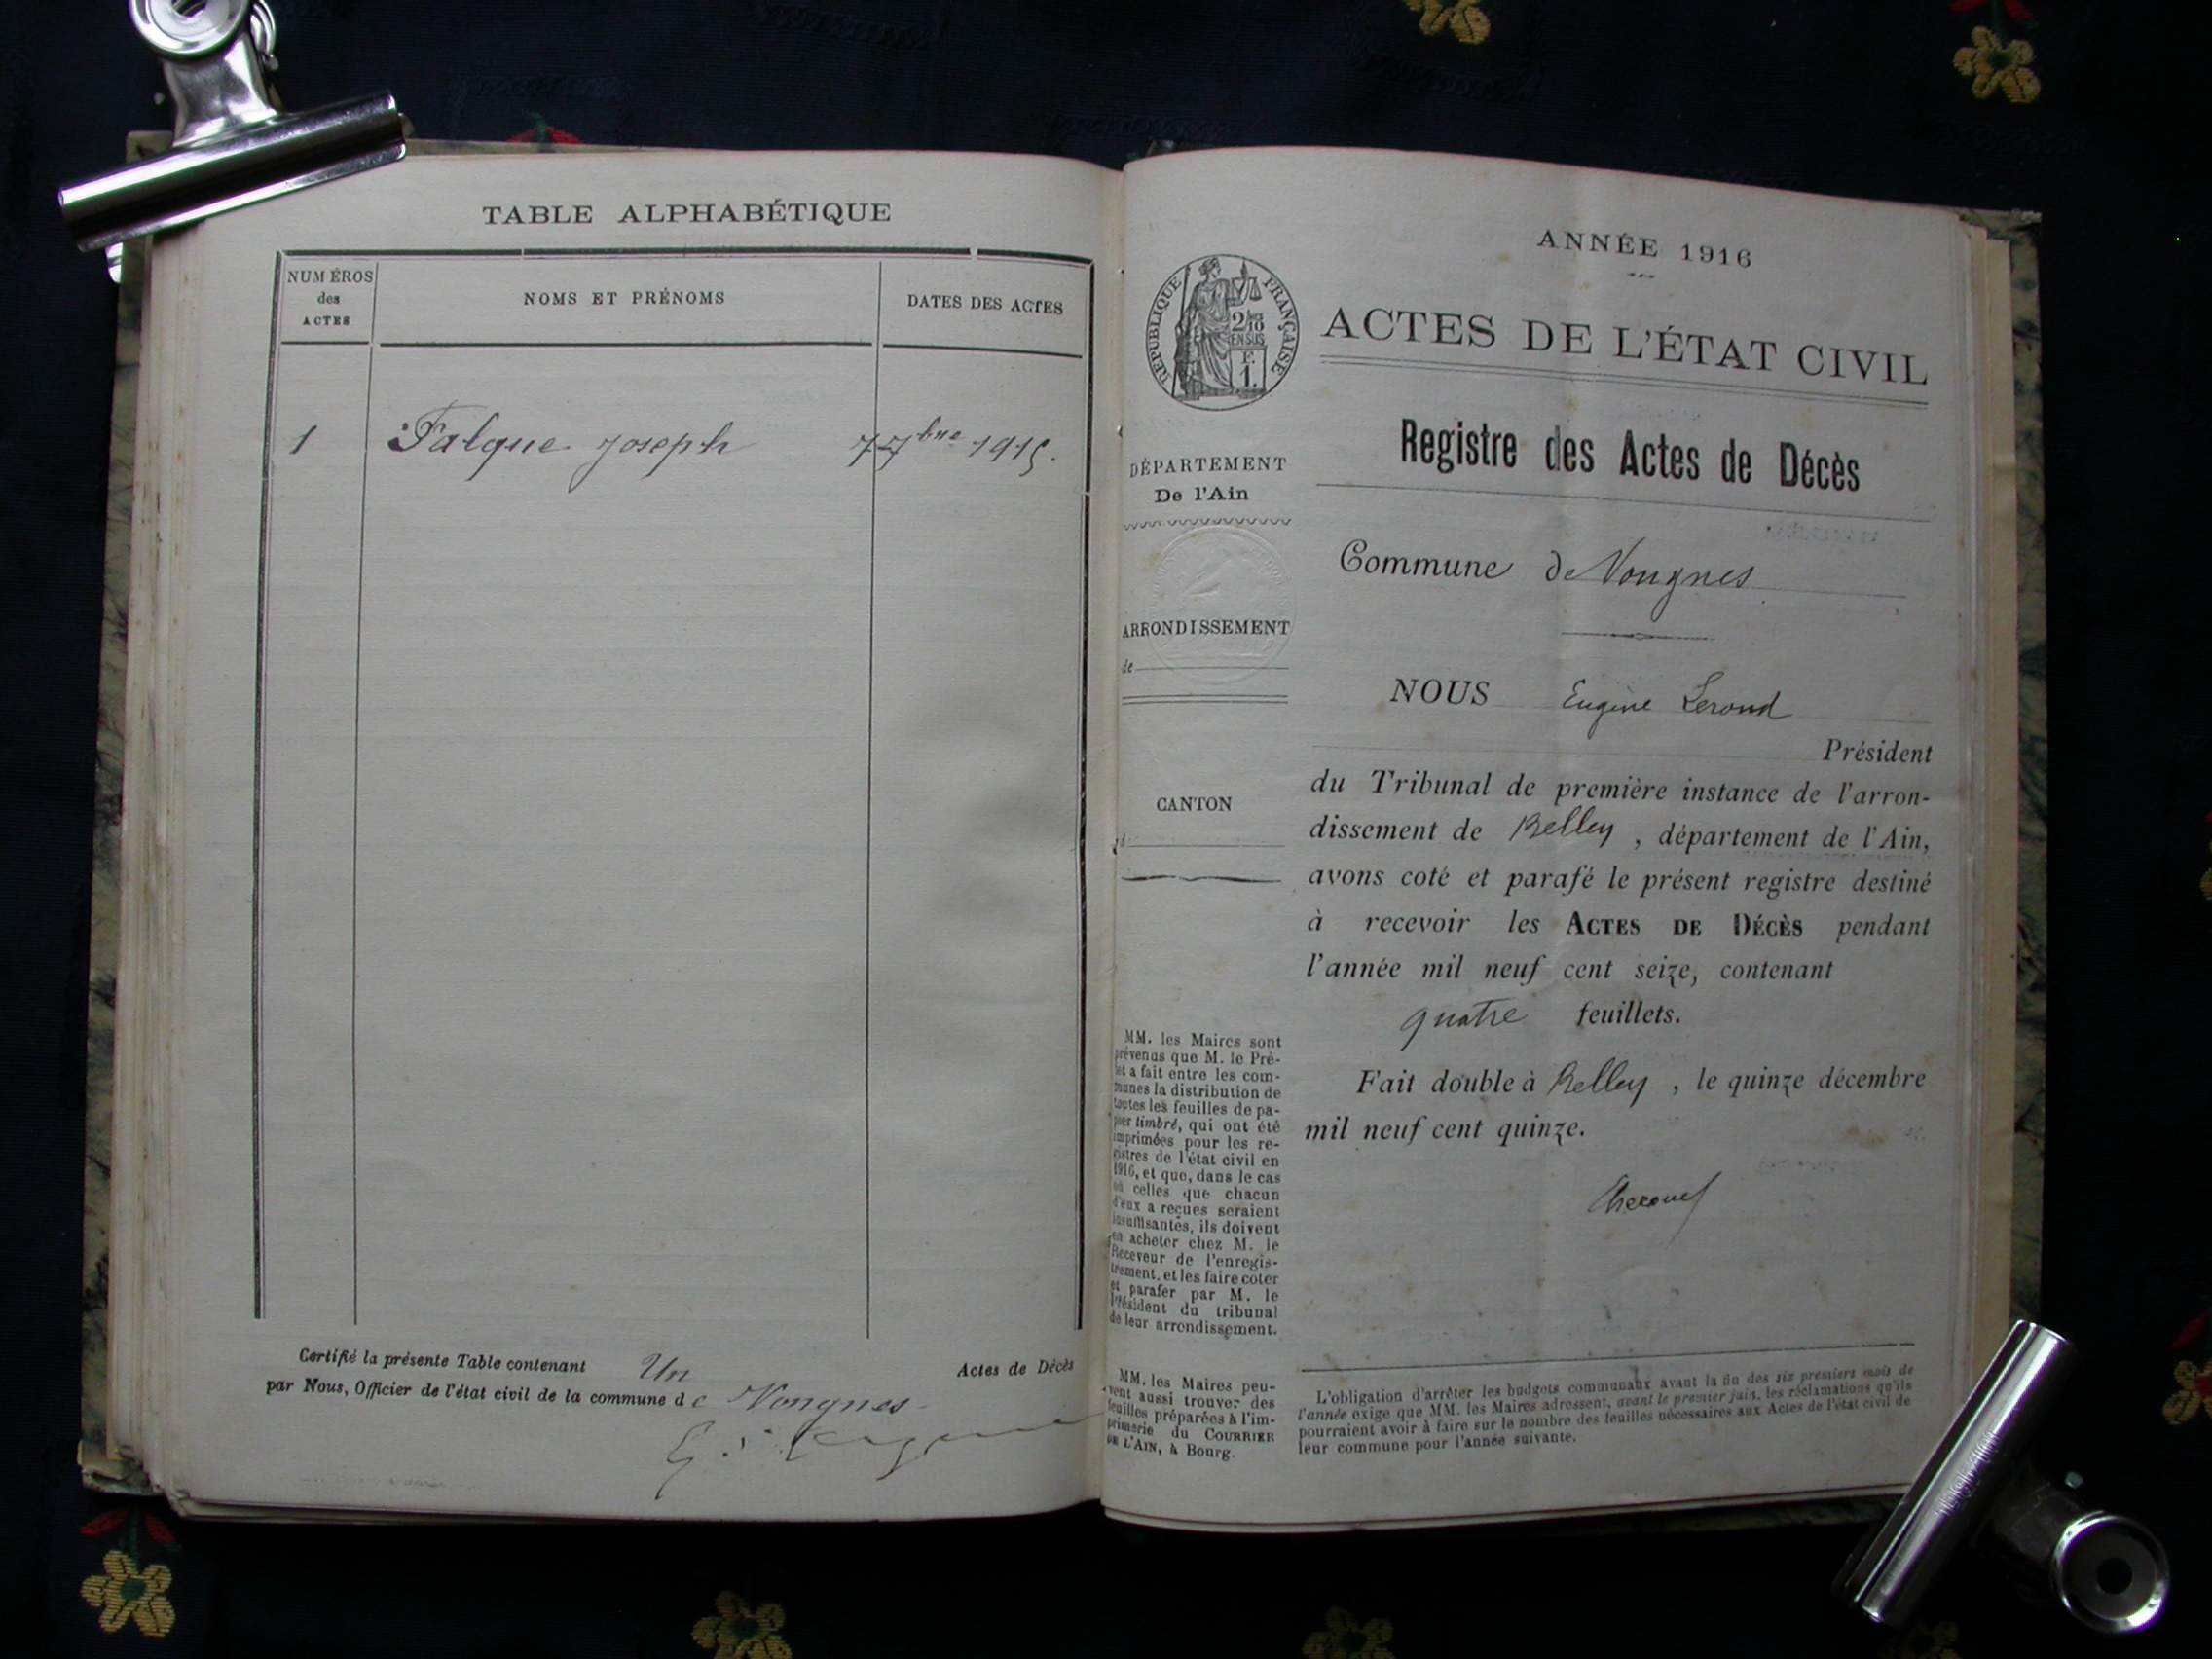 TABLE ALPHABÉTIQUE
NUMÉROS
des
ACTES
NOMS ET PRÉNOMS
DATES DES ACTES
1 Falque Joseph 7 7bre 1915.
Certifié la présente Table contenant Un Actes de Décès
par Nous, Officier de l'état civil de la commune de Vongnes
ANNÉE 1916
RÉPUBLIQUE FRANÇAISE
2/10
EN SUS
E.
1.
ACTES DE L'ÉTAT CIVIL
Registre des Actes de Décès
DÉPARTEMENT
De l'Ain
Commune de Vongnes
ARRONDISSEMENT
de
NOUS Eugène Lerond
Président
du Tribunal de première instance de l'arron-
dissement de Belley, département de l'Ain,
avons coté et parafé le présent registre destiné
à recevoir les ACTES DE DÉCÈS pendant
l'année mil neuf cent seize, contenant
quatre feuillets.
Fait double à Belley, le quinze décembre
mil neuf cent quinze.
CANTON
d
MM. les Maires sont
prévenus que M. le Pré-
fet a fait entre les com-
munes la distribution de
toutes les feuilles de pa-
pier timbré, qui ont été
imprimées pour les re-
gistres de l'état civil en
1916, et que, dans le cas
où celles que chacun
d'eux a reçues seraient
insuffisantes, ils doivent
en acheter chez M. le
Receveur de l'enregis-
trement, et les faire coter
et parafer par M. le
Président du tribunal
de leur arrondissement.
MM. les Maires peu-
vent aussi trouver des
feuilles préparées à l'im-
primerie du COURRIER
DE L'AIN, à Bourg.
L'obligation d'arrêter les budgets communaux avant la fin des six premiers mois de
l'année exige que MM. les Maires adressent, avant le premier juin, les réclamations qu'ils
pourraient avoir à faire sur le nombre des feuilles nécessaires aux Actes de l'état civil de
leur commune pour l'année suivante.